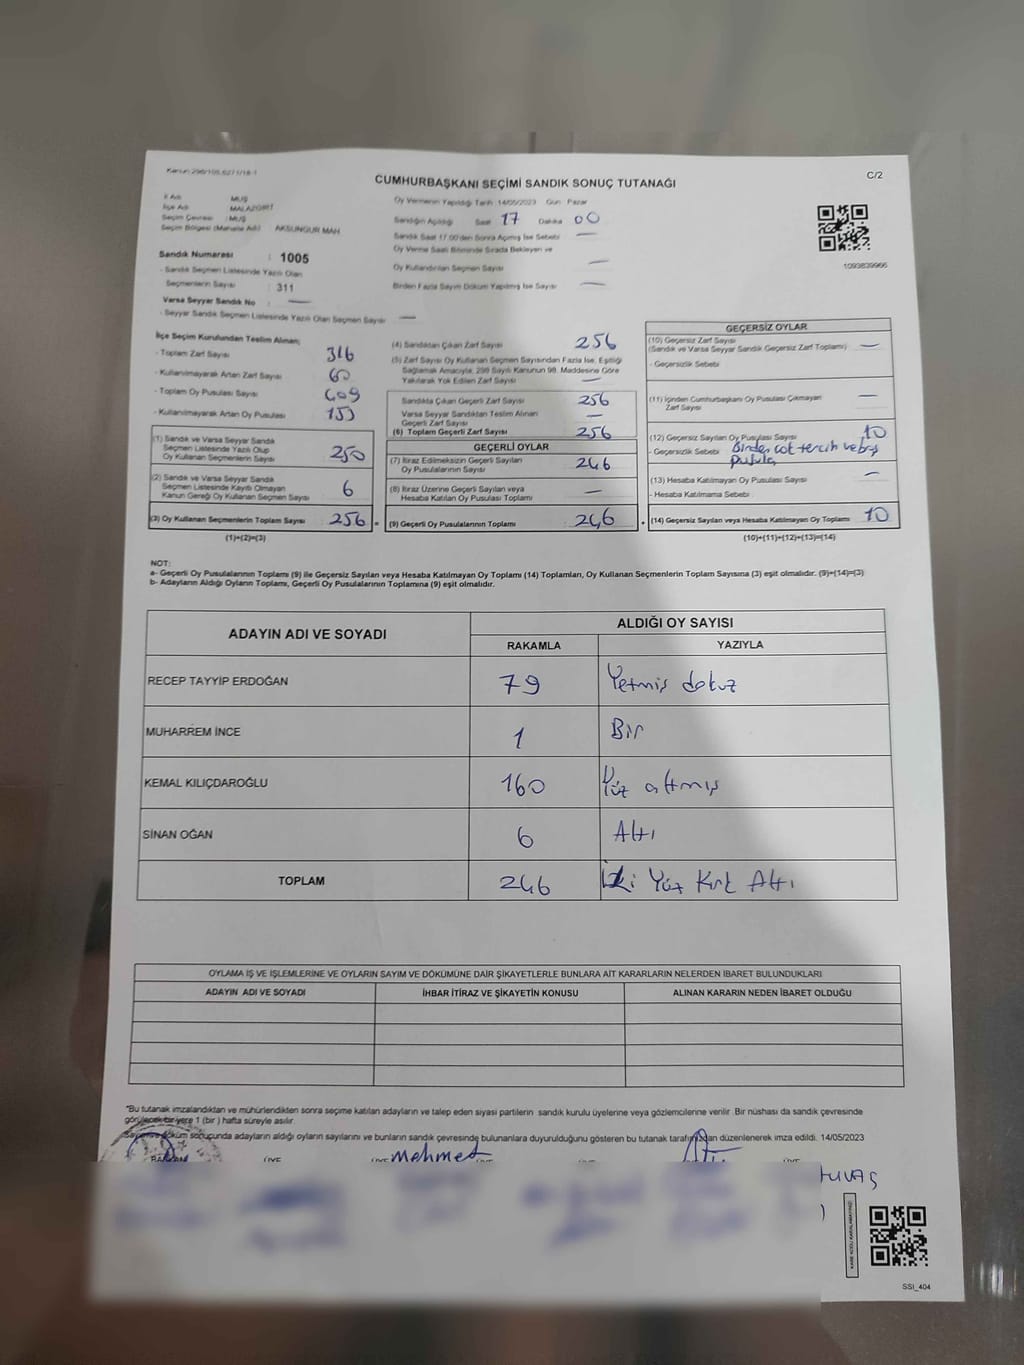 Kanun:298/105,6271/18-1
C/2
CUMHURBAŞKANI SEÇİMİ SANDIK SONUÇ TUTANAĞI
İl Adı : MUŞ
İlçe Adı : MALAZGİRT
Seçim Çevresi : MUŞ
Seçim Bölgesi (Mahalle Adı) : AKSUNGUR MAH
Sandık Numarası : 1005
- Sandık Seçmen Listesinde Yazılı Olan
Seçmenlerin Sayısı : 311
Varsa Seyyar Sandık No : —
- Seyyar Sandık Seçmen Listesinde Yazılı Olan Seçmen Sayısı —
Oy Vermenin Yapıldığı Tarih 14/05/2023 Gün Pazar
Sandığın Açıldığı Saat 17 Dakika 00
Sandık Saat 17:00'den Sonra Açılmış İse Sebebi —
Oy Verme Saati Bitiminde Sırada Bekleyen ve
Oy Kullandırılan Seçmen Sayısı —
Birden Fazla Sayım Döküm Yapılmış İse Sayısı —
1093839966
İlçe Seçim Kurulundan Teslim Alınan;
- Toplam Zarf Sayısı 316
- Kullanılmayarak Artan Zarf Sayısı 60
- Toplam Oy Pusulası Sayısı 409
- Kullanılmayarak Artan Oy Pusulası 153
(1) Sandık ve Varsa Seyyar Sandık
Seçmen Listesinde Yazılı Olup
Oy Kullanan Seçmenlerin Sayısı 250
(2) Sandık ve Varsa Seyyar Sandık
Seçmen Listesinde Kayıtlı Olmayan
Kanun Gereği Oy Kullanan Seçmen Sayısı 6
(3) Oy Kullanan Seçmenlerin Toplam Sayısı 256 =
(1)+(2)=(3)
(4) Sandıktan Çıkan Zarf Sayısı 256
(5) Zarf Sayısı Oy Kullanan Seçmen Sayısından Fazla İse, Eşitliği
Sağlamak Amacıyla, 298 Sayılı Kanunun 98. Maddesine Göre
Yakılarak Yok Edilen Zarf Sayısı —
Sandıkta Çıkan Geçerli Zarf Sayısı 256
Varsa Seyyar Sandıktan Teslim Alınan
Geçerli Zarf Sayısı —
(6) Toplam Geçerli Zarf Sayısı 256
GEÇERLİ OYLAR
(7) İtiraz Edilmeksizin Geçerli Sayılan
Oy Pusulalarının Sayısı 246
(8) İtiraz Üzerine Geçerli Sayılan veya
Hesaba Katılan Oy Pusulası Toplamı —
(9) Geçerli Oy Pusulalarının Toplamı 246
GEÇERSİZ OYLAR
(10) Geçersiz Zarf Sayısı
(Sandık ve Varsa Seyyar Sandık Geçersiz Zarf Toplamı) —
- Geçersizlik Sebebi
(11) İçinden Cumhurbaşkanı Oy Pusulası Çıkmayan
Zarf Sayısı —
(12) Geçersiz Sayılan Oy Pusulası Sayısı 10
- Geçersizlik Sebebi Birden çok tercih ve boş
pusula
(13) Hesaba Katılmayan Oy Pusulası Sayısı —
- Hesaba Katılmama Sebebi
(14) Geçersiz Sayılan veya Hesaba Katılmayan Oy Toplamı 10
(10)+(11)+(12)+(13)=(14)
NOT:
a- Geçerli Oy Pusulalarının Toplamı (9) ile Geçersiz Sayılan veya Hesaba Katılmayan Oy Toplamı (14) Toplamları, Oy Kullanan Seçmenlerin Toplam Sayısına (3) eşit olmalıdır. (9)+(14)=(3)
b- Adayların Aldığı Oyların Toplamı, Geçerli Oy Pusulalarının Toplamına (9) eşit olmalıdır.
ADAYIN ADI VE SOYADI
ALDIĞI OY SAYISI
RAKAMLA YAZIYLA
RECEP TAYYİP ERDOĞAN 79 Yetmiş dokuz
MUHARREM İNCE 1 Bir
KEMAL KILIÇDAROĞLU 160 Yüz altmış
SİNAN OĞAN 6 Altı
TOPLAM 246 İki Yüz Kırk Altı
OYLAMA İŞ VE İŞLEMLERİNE VE OYLARIN SAYIM VE DÖKÜMÜNE DAİR ŞİKAYETLERLE BUNLARA AİT KARARLARIN NELERDEN İBARET BULUNDUKLARI
ADAYIN ADI VE SOYADI İHBAR İTİRAZ VE ŞİKAYETİN KONUSU ALINAN KARARIN NEDEN İBARET OLDUĞU
*Bu tutanak imzalandıktan ve mühürlendikten sonra seçime katılan adayların ve talep eden siyasi partilerin sandık kurulu üyelerine veya gözlemcilerine verilir. Bir nüshası da sandık çevresinde
görülecek bir yere 1 (bir) hafta süreyle asılır.
Sayım ve döküm sonucunda adayların aldığı oyların sayılarını ve bunların sandık çevresinde bulunanlara duyurulduğunu gösteren bu tutanak tarafımızdan düzenlenerek imza edildi. 14/05/2023
BAŞKAN ÜYE ÜYE Mehmet ÜYE ÜYE
SSI_404